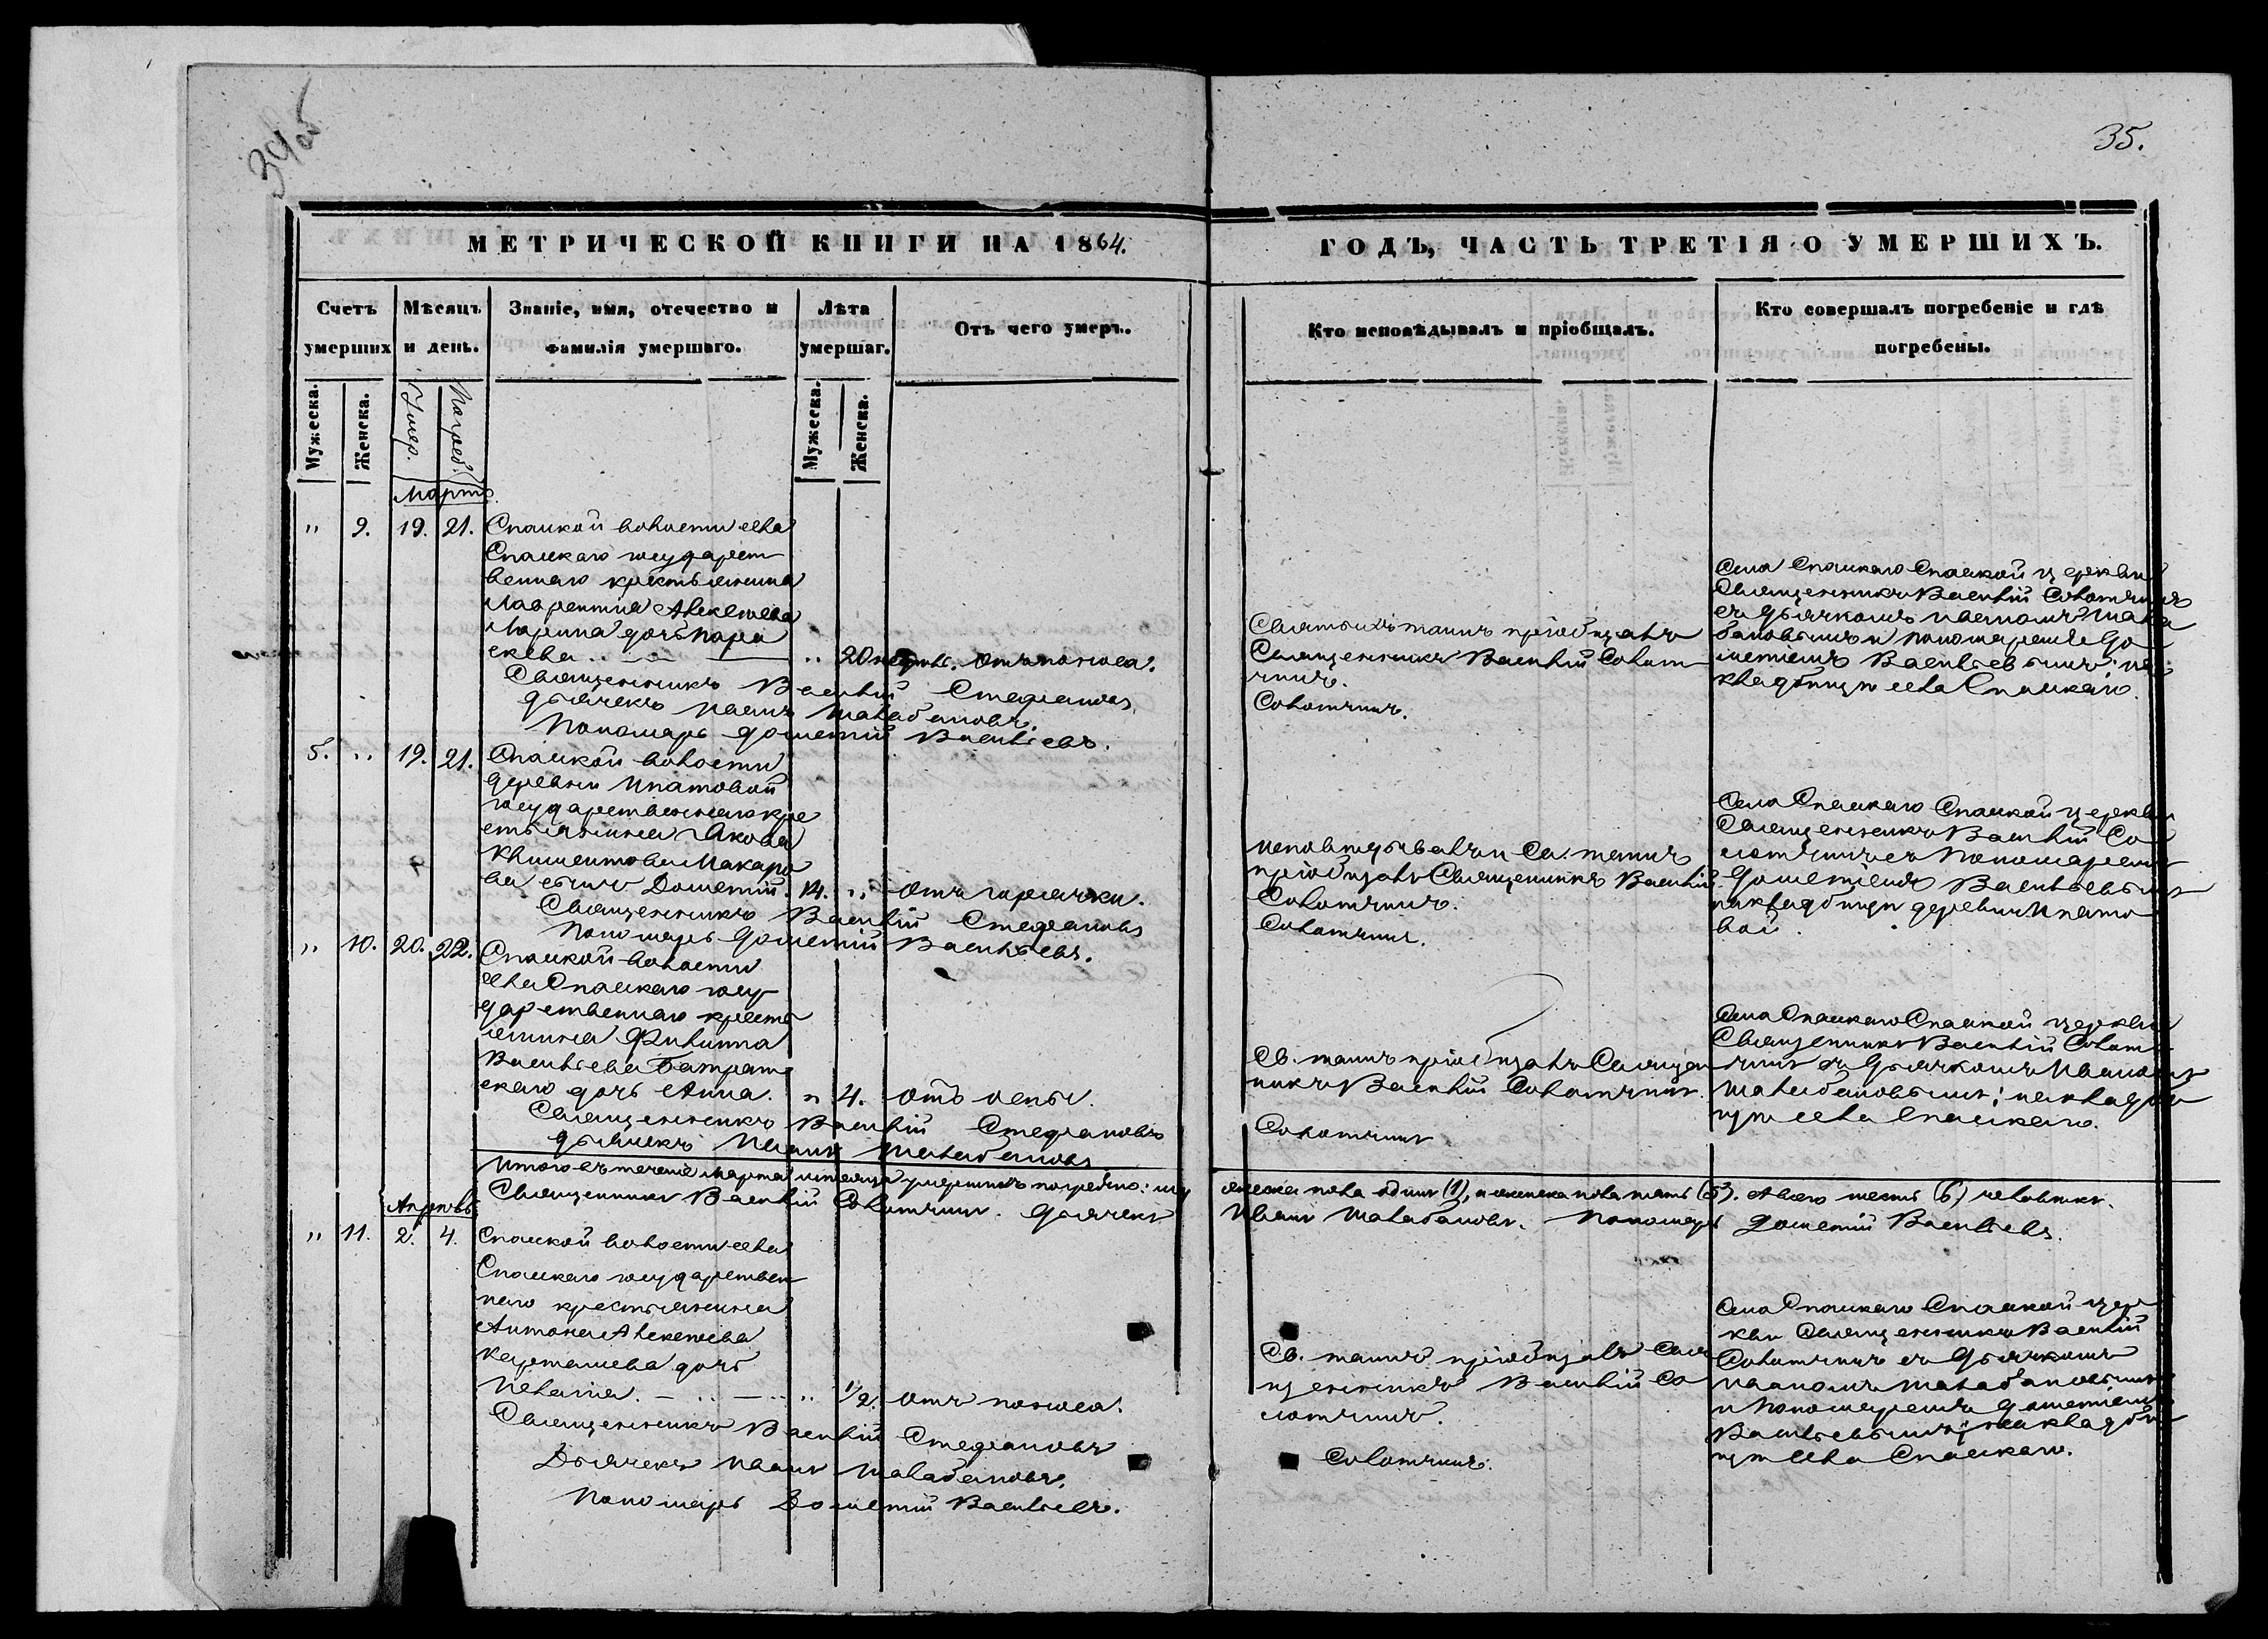 34об
35.
МЕТРИЧЕСКОЙ КНИГИ НА 1864.
ГОДЪ, ЧАСТЬ ТРЕТІЯ О УМЕРШИХЪ.
Счетъ умерших
Мѣсяцъ и день.
Званіе, имя, отечество и фамилія умершаго.
Лѣта умершаг.
Отъ чего умеръ.
Кто исповѣдывалъ и пріобщалъ.
Кто совершалъ погребеніе и гдѣ погребены.
Мужеска.
Женска.
Умер.
Погреб.
Мужеска.
Женска.
Мартъ.
" 9. 19. 21. Спаской волости села
Спаскаго государст
веннаго крестьянина
Лаврентія Алексѣева
Ларина дочь Пара
скева .. 20 недѣль. Отъ поноса.
Священникъ Василій Стефановъ
Дьячекъ Иванъ Шалабановъ.
Пономарь Дометій Васильевъ.
Святыхъ таинъ пріобщалъ
Священникъ Василій Солот
чинъ.
Солотчинъ.
Села Спаскаго Спаской церкви
Священникъ Василій Солотчинъ
съ дьячкомъ Иваномъ Шала
бановымъ и пономаремъ До
метіемъ Васильевымъ; на
кладбищѣ села Спаскаго.
5. " 19. 21. Спаской волости
деревни Ипатовой
государственнаго кре
стьянина Якова
Климентова Макаро
ва сынъ Дометій. 14. " Отъ горячки.
Священникъ Василій Стефановъ
Пономарь Дометій Васильевъ.
Исповѣдывалъ и Св. таинъ
пріобщалъ Священникъ Василій
Солотчинъ.
Солотчинъ.
Села Спаскаго Спаской церкви
Священникъ Василій Со
лотчинъ съ Пономаремъ
Дометіемъ Васильевымъ
на кладбищѣ деревни Ипато
вой.
" 10. 20. 22. Спаской волости
села Спаскаго госу
дарственнаго кресть
янина Филиппа
Васильева Батрат
скаго дочь Анна. " 4. Отъ оспы.
Священникъ Василій Стефановъ
Дьячекъ Иванъ Шалабановъ
Св. таинъ пріобщалъ Священ
никъ Василій Солотчинъ.
Солотчинъ
Села Спаскаго Спаской церкви
Священникъ Василій Солот
чинъ съ дьячкомъ Иваномъ
Шалабановымъ; на кладби
щѣ села Спаскаго.
Итого въ теченіе Марта мѣсяца умершихъ погребено: му
жеска пола одинъ (1), а женска пола пять (5). А всего шесть (6) человѣкъ.
Священникъ Василій Солотчинъ. Дьячекъ
Иванъ Шалабановъ. Пономарь Дометій Васильевъ.
Апрель
" 11. 2. 4. Спаской волости села
Спаскаго государствен
наго крестьянина
Антона Алексѣева
дочь
Пелагія. 1/2. Отъ поноса.
Священникъ Василій Стефановъ
Дьячекъ Иванъ Шалабановъ.
Пономарь Дометій Васильевъ.
Св. таинъ пріобщалъ Свя
щенникъ Василій Со
лотчинъ.
Солотчинъ.
Села Спаскаго Спаской цер
кви Священникъ Василій
Солотчинъ съ Дьячкомъ
Иваномъ Шалабановымъ
и Пономаремъ Дометіемъ
Васильевымъ; на кладби
щѣ села Спаскаго.